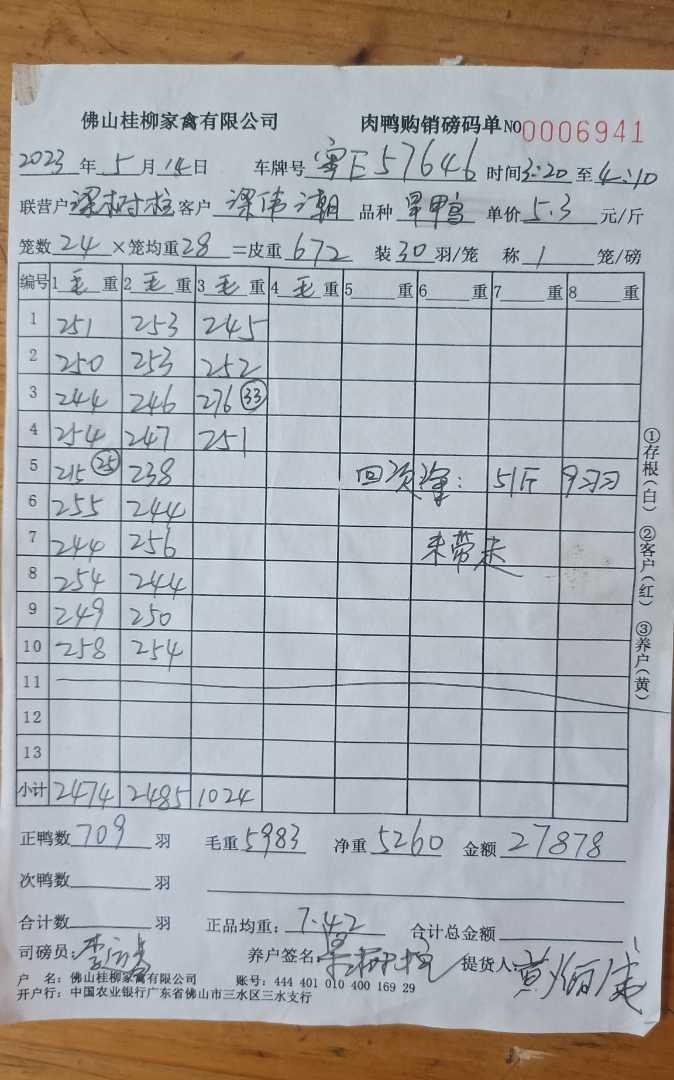 佛山桂柳家禽有限公司 肉鸭购销磅码单 NO 0006941
2023 年 5 月 14 日 车牌号 粤E57646 时间 3:20 至 4:10
联营户 梁树柱 客户 梁伟潮 品种 旱鸭 单价 5.3 元/斤
笼数 24 ×笼均重 28 =皮重 672 装 30 羽/笼 称 1 笼/磅
编号 1 毛 重 2 毛 重 3 毛 重 4 毛 重 5 重 6 重 7 重 8 重
1 251 253 245
2 250 253 252
3 244 246 276 33
4 254 247 251
5 215 25 238 回次 : 51斤 9羽
6 255 244
7 244 256 未带走
8 254 244
9 249 250
10 258 254
11
12
13
小计 2474 2485 1024
①存根(白) ②客户(红) ③养户(黄)
正鸭数 709 羽 毛重 5983 净重 5260 金额 27878
次鸭数 羽
合计数 羽 正品均重: 7.42 合计总金额
司磅员: 养户签名 梁树柱 提货人:
户 名: 佛山桂柳家禽有限公司 账号: 444 401 010 400 169 29
开户行: 中国农业银行广东省佛山市三水区三水支行